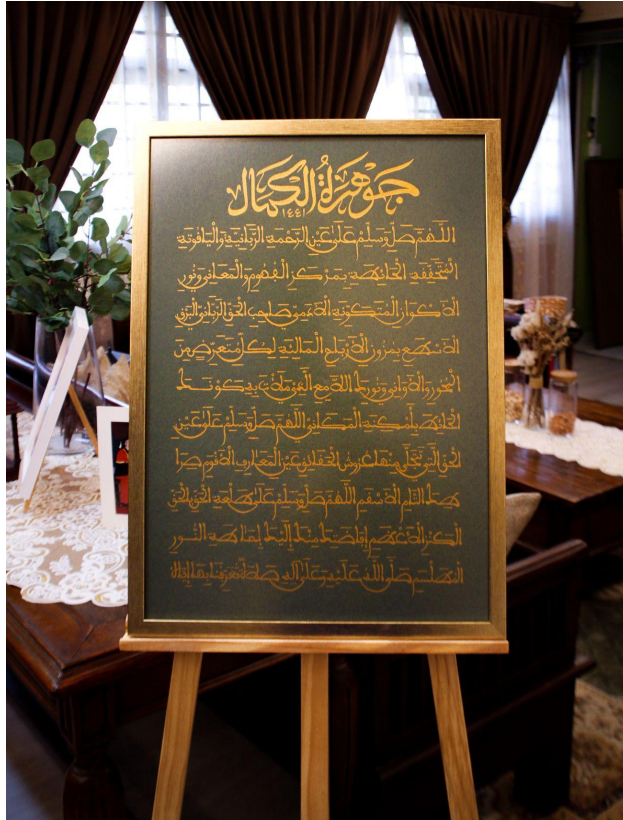 جَوْهَرَةُ الْكَمَالِ
١٤٤١
اللَّهُمَّ صَلِّ وَسَلِّمْ عَلَى عَيْنِ الرَّحْمَةِ الرَّبَّانِيَّةِ وَالْيَاقُوتَةِ
الْمُتَحَقِّقَةِ الْحَائِطَةِ بِمَرْكَزِ الْفُهُومِ وَالْمَعَانِي وَنُورِ
الْأَكْوَانِ الْمُتَكَوِّنَةِ الْآدَمِيِّ صَاحِبِ الْحَقِّ الرَّبَّانِي الْبَرْقِ
الْأَسْطَعِ بِمُزُونِ الْأَرْبَاحِ الْمَالِئَةِ لِكُلِّ مُتَعَرِّضٍ مِنَ
الْبُحُورِ وَالْأَوَانِي وَنُورِكَ اللَّامِعِ الَّذِي مَلَأْتَ بِهِ كَوْنَكَ
الْحَائِطِ بِأَمْكِنَةِ الْمَكَانِي اللَّهُمَّ صَلِّ وَسَلِّمْ عَلَى عَيْنِ
الْحَقِّ الَّتِي تَتَجَلَّى مِنْهَا عُرُوشُ الْحَقَائِقِ عَيْنِ الْمَعَارِفِ الْأَقْوَمِ صِرَا
طِكَ التَّامِّ الْأَسْقَمِ اللَّهُمَّ صَلِّ وَسَلِّمْ عَلَى طَلْعَةِ الْحَقِّ بِالْحَقِّ
الْكَنْزِ الْأَعْظَمِ إِفَاضَتِكَ مِنْكَ إِلَيْكَ إِحَاطَةِ النُّورِ
الْمُطَلْسَمِ صَلَّى اللَّهُ عَلَيْهِ وَعَلَى آلِهِ صَلَاةً تُعَرِّفُنَا بِهَا إِيَّاهُ